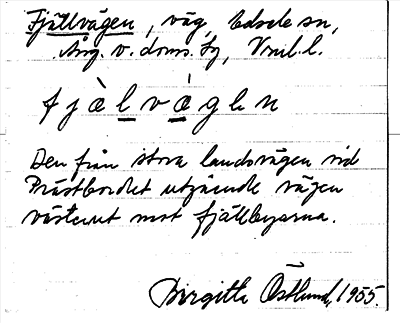 Fjällvägen, väg, Edsele sn,
Ång. v. doms. tg, Vnrl. l.
fjàlvàgen
Den från stora landsvägen vid
Prästbordet utgående vägen
västerut mot fjällbyarna.
Birgitta Östlund, 1955.